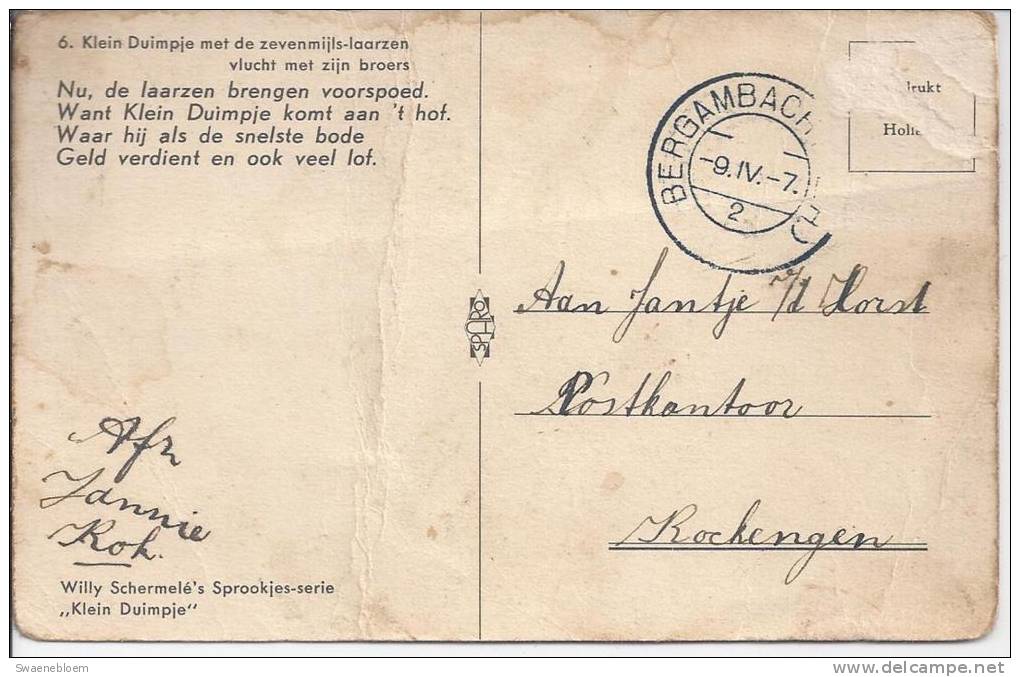 6. Klein Duimpje met de zevenmijls-laarzen
vlucht met zijn broers
Nu, de laarzen brengen voorspoed.
Want Klein Duimpje komt aan 't hof.
Waar hij als de snelste bode
Geld verdient en ook veel lof.
BERGAMBACHT
-9.IV.-7.
2
drukt
Holl
Aan Jantje v/d Horst
SPÜRO
Postkantoor
Kockengen
Afz
Jannie
Kok.
Willy Schermelé's Sprookjes-serie
„Klein Duimpje"
Swaenebloem
delcampe.net